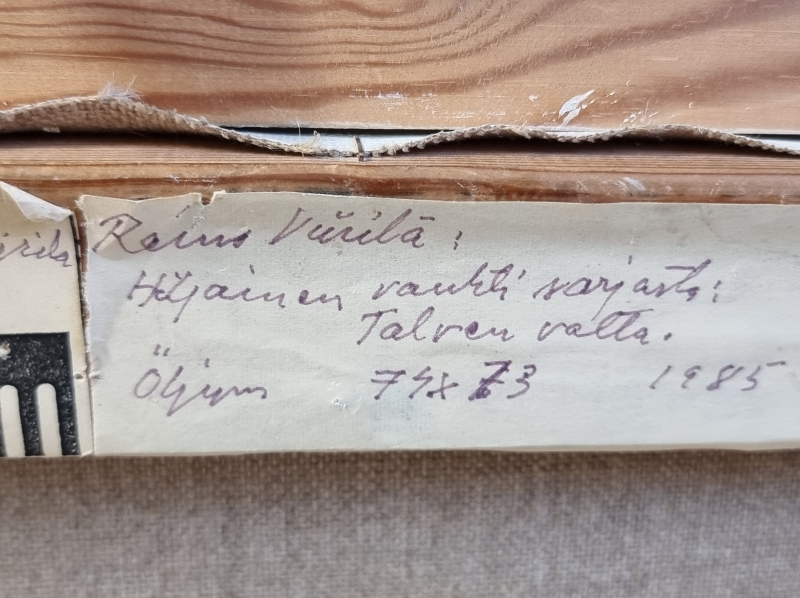 Raimo Viirilä:
Hiljainen vauhti sarjasta:
Talven valta.
Öljy 74x73 1985